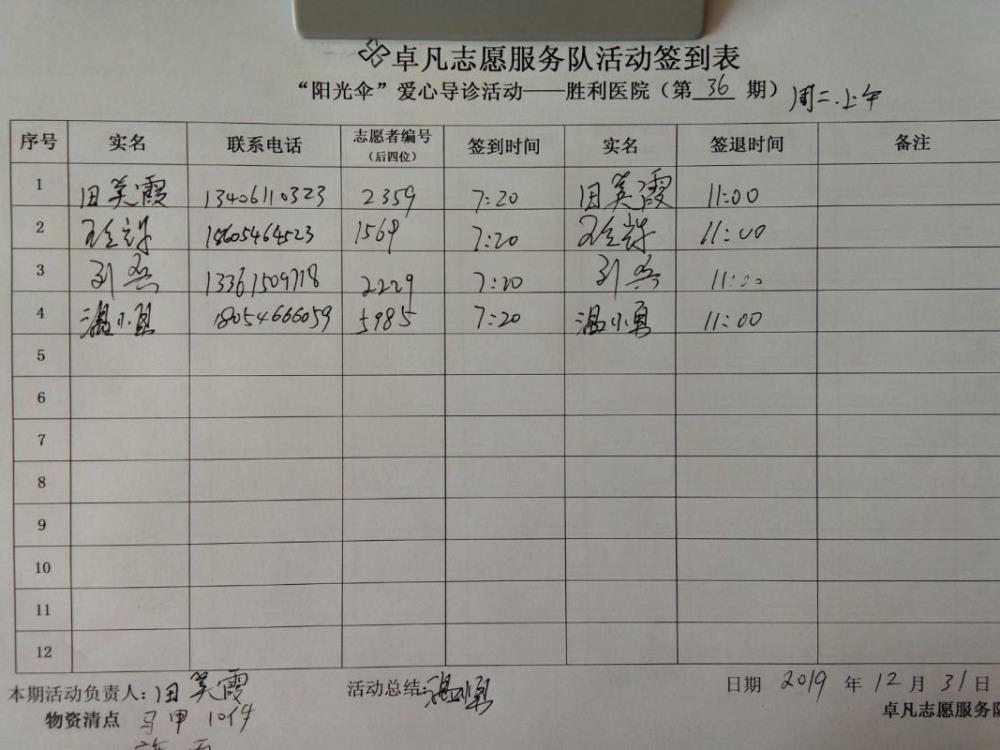 卓凡志愿服务队活动签到表
“阳光伞”爱心导诊活动——胜利医院（第 36 期） 周二.上午
序号 实名 联系电话 志愿者编号（后四位） 签到时间 实名 签退时间 备注
1 田美霞 13406110323 2359 7:20 田美霞 11:00
2 18605464523 1569 7:20 11:00
3 刘 13361509718 2229 7:20 刘 11:00
4 温小勇 18054666059 5985 7:20 温小勇 11:00
5
6
7
8
9
10
11
12
本期活动负责人：田美霞 活动总结：温小勇 日期 2019 年 12 月 31 日
物资清点 马甲 10件 卓凡志愿服务队